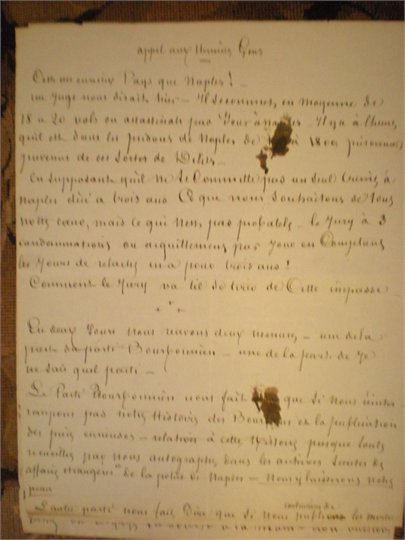 appel aux Honnêtes Gens
C'est un curieux Pays que Naples!
un Juge nous disait hier – Il se commet, en moyenne de
18 a 20 vols ou assassinats par Jour à Naples. Il y a à l'heure
qu'il est dans les prisons de Naples de 1800 prisonniers
prevenus de ces sortes de Delits –
En supposant qu'il ne se Committe pas un seul Crime à
Naples d'ici a trois ans Ce que nous souhaitons de tous
notre cœur, mais ce qui n'est pas probable – le Jury à 3
condamnations ou acquittement par Jour en Comptant
les Jours de relache en a pour trois ans!
Comment le Jury va t-il se tirer de Cette impasse
En deux Jours nous recevons deux menaces – une de la
part du parti Bourbonnien – une de la part de Je
ne sais quel parti –
Le Parti Bourbonnien nous fait que si nous
pas notre Histoire des Bourbons et la publication
des pieces curieuses – relatives à cette Histoire presque toutes
recueillies par nous autographes dans les archives secretes des
affaires etrangères de la police de Naples – nous y laisserons notre
peau
L'autre parti nous fait Dire que si nous publions